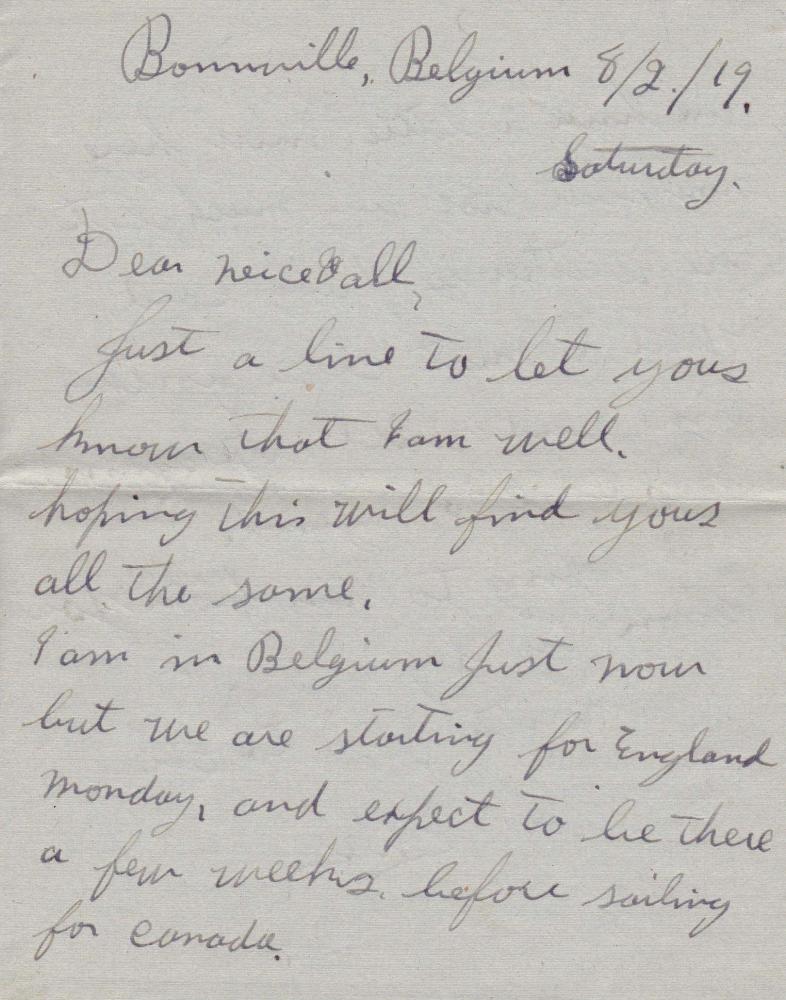 Bonnville, Belgium 8/2./19.
Saturday.
Dear neice & all,
Just a line to let yous
know that I am well.
hoping this will find yous
all the same.
I am in Belgium Just now
but we are starting for England
monday, and expect to be there
a few weeks, before sailing
for canada.